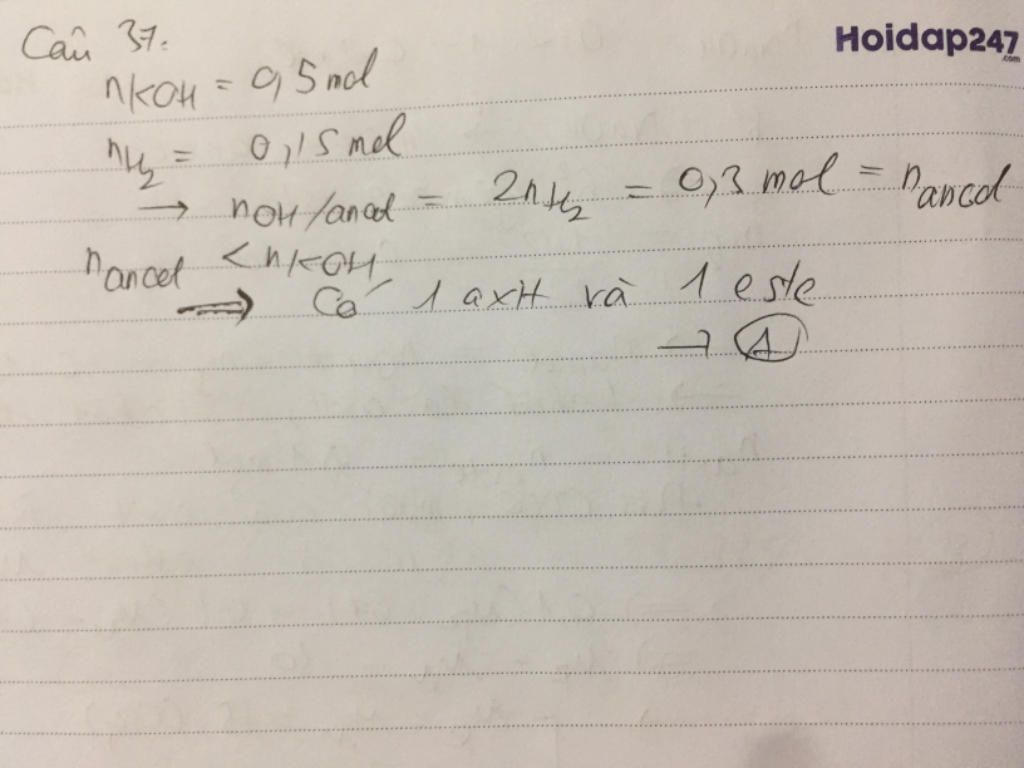 Câu 37:
Hoidap247
.com
nKOH = 0,5 mol
nH2 = 0,15 mol
→ nOH/ancol = 2nH2 = 0,3 mol = nancol
nancol < nKOH
⇒ Có 1 axit và 1 este
→ A